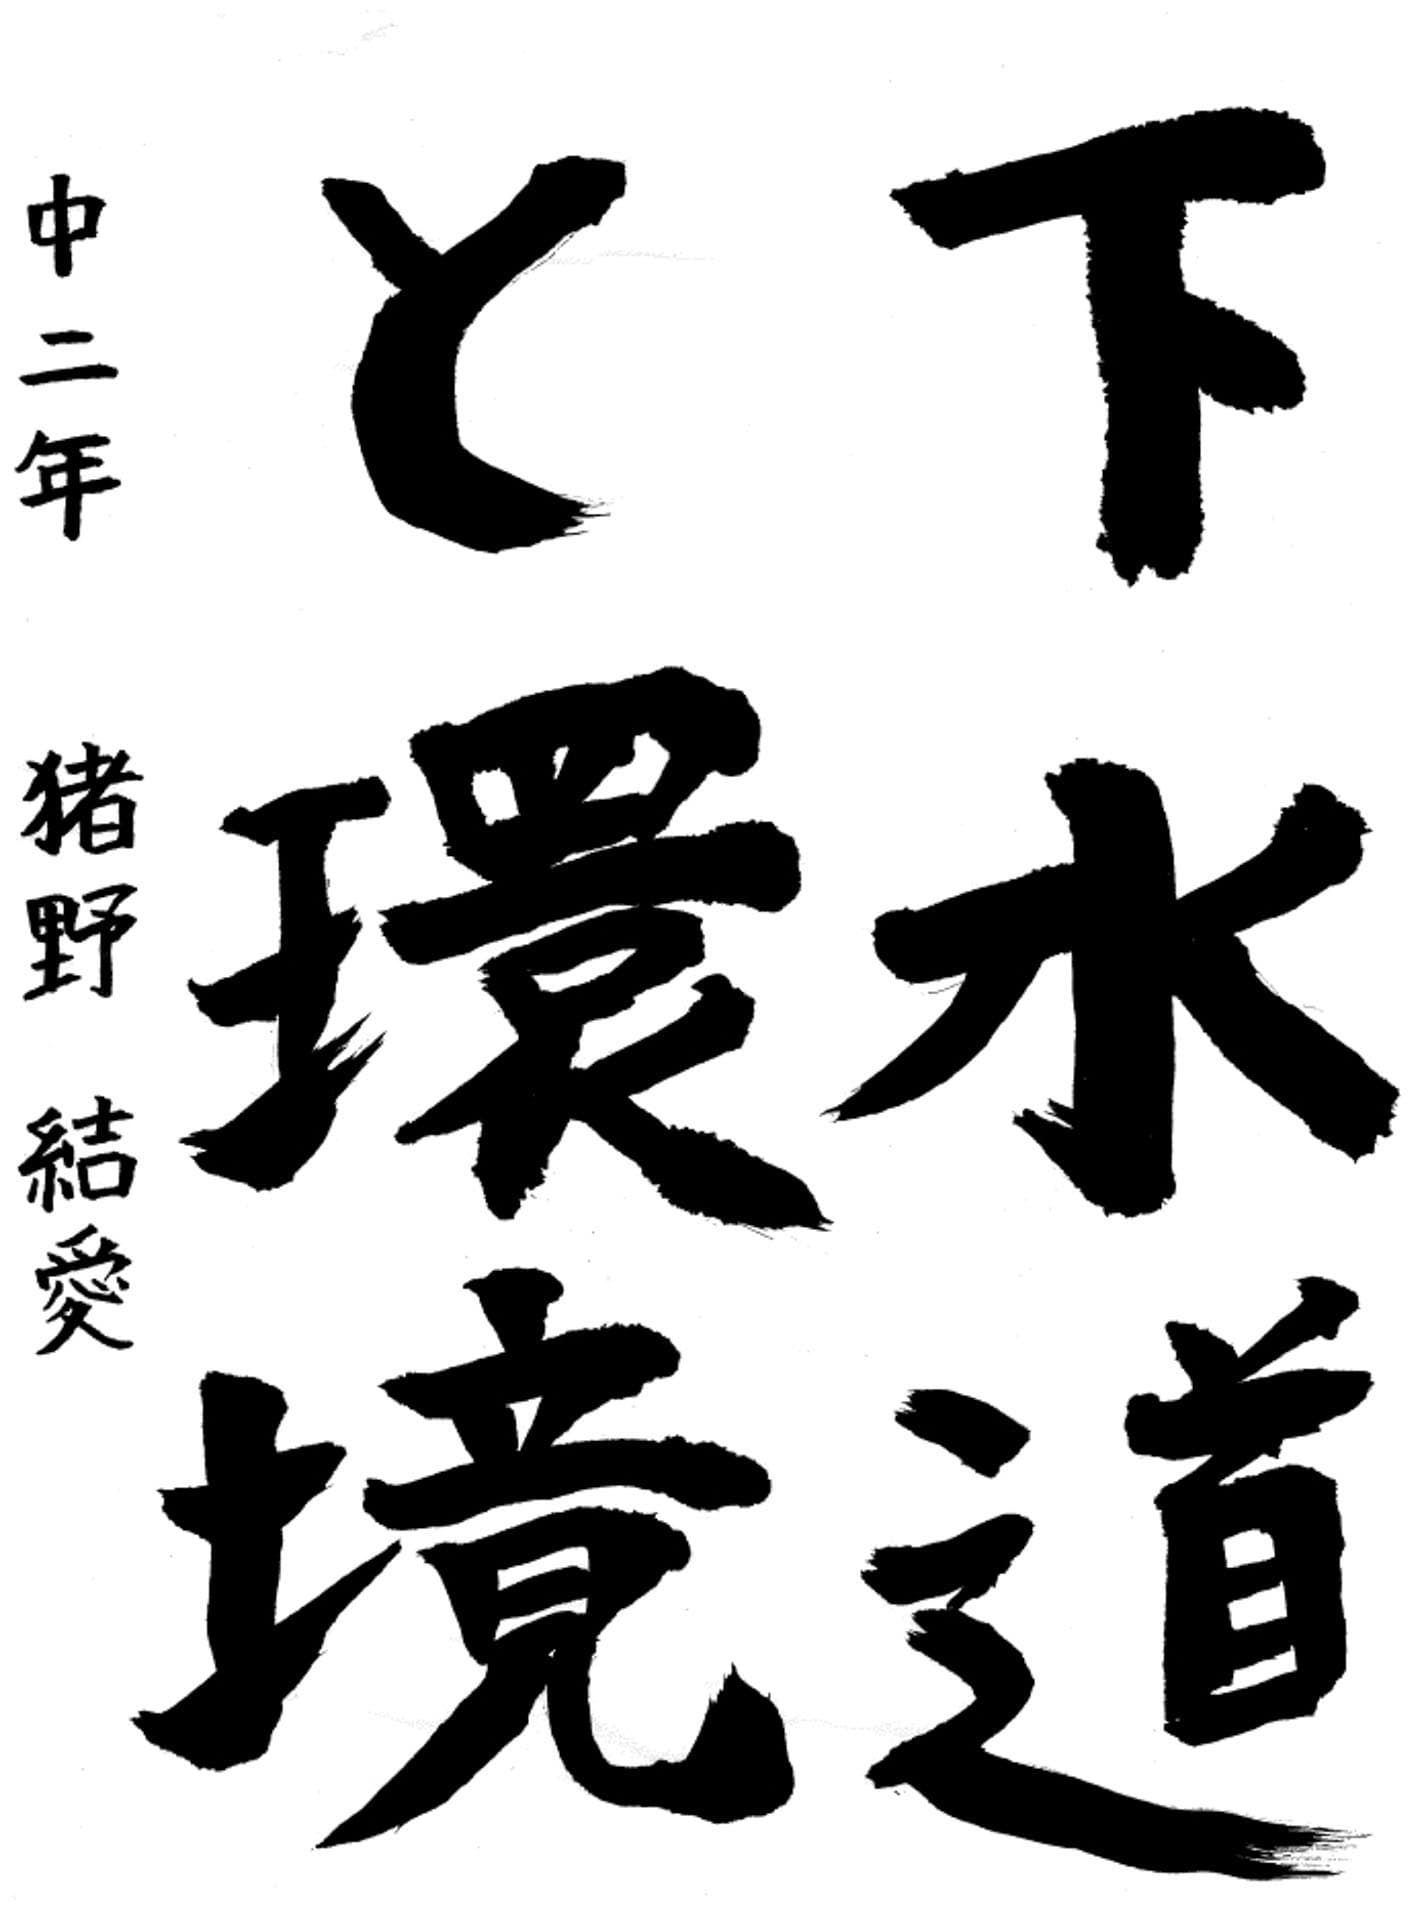 下水道
と環境
中二年 猪野 結愛